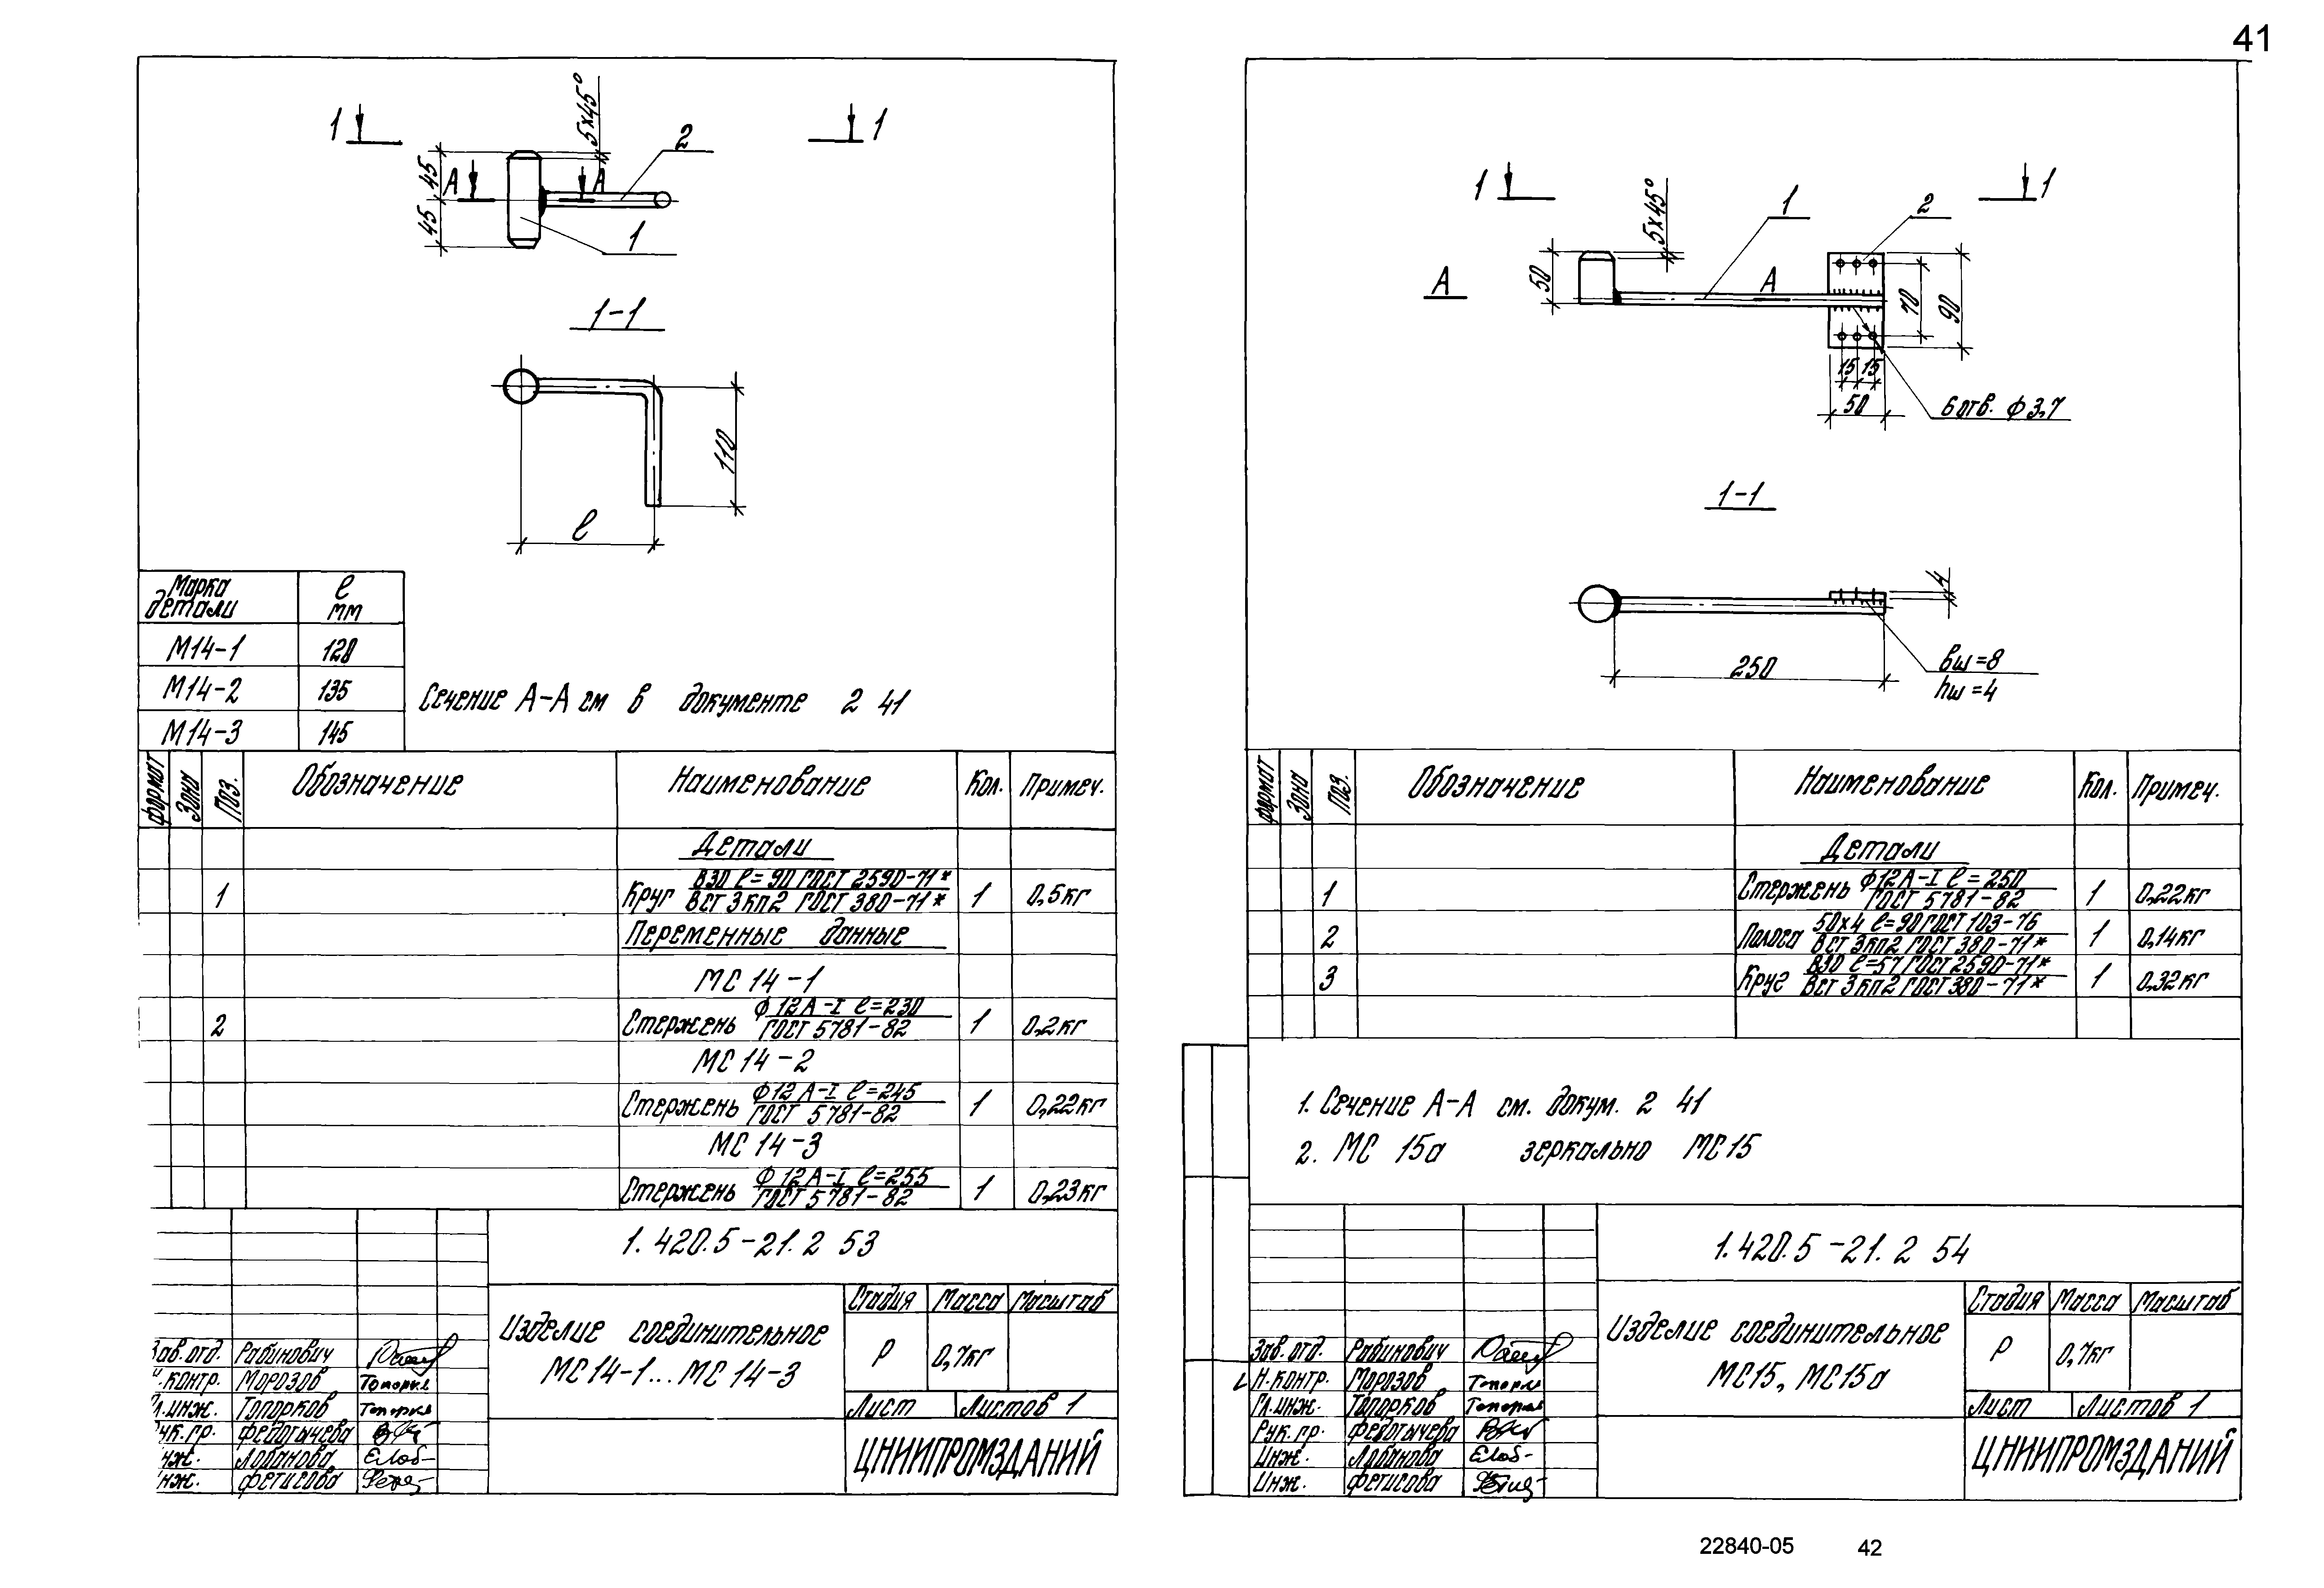 41
1 1
5×45°
2
45
А А
45
1
1-1
110
ℓ
Марка детали ℓ мм
М14-1 120
М14-2 135
М14-3 145
Сечение А-А см в документе 2 41
формат Зона Поз. Обозначение Наименование Кол. Примеч.
Детали
1 Круг В30 ℓ=90 ГОСТ 2590-71* 1 0,5кг
ВСт 3кп2 ГОСТ 380-71*
Переменные данные
МС 14-1
2 Стержень Ф12А-I ℓ=230 1 0,2кг
ГОСТ 5781-82
МС 14-2
Стержень Ф12А-I ℓ=245 1 0,22кг
ГОСТ 5781-82
МС 14-3
Стержень Ф12А-I ℓ=255 1 0,23кг
ГОСТ 5781-82
1.420.5-21.2 53
Изделие соединительное
МС14-1...МС14-3
Стадия Масса Масштаб
Р 0,7кг
Лист Листов 1
ЦНИИПРОМЗДАНИЙ
Зав.отд. Рабинович
Н.контр. Морозов Топорков
Гл.инж. Топорков Топорков
Рук.гр. Федотычева
Инж. Лобанова
Инж. Фетисова
1 1
5×45°
1
2
50
А А
70
90
15 15
50
6 отв. Ф3,7
1-1
4
250
bш=8
hш=4
формат Зона Поз. Обозначение Наименование Кол. Примеч.
Детали
1 Стержень Ф12А-I ℓ=250 1 0,22кг
ГОСТ 5781-82
2 Полоса 50×4 ℓ=90 ГОСТ 103-76 1 0,14кг
ВСт 3кп2 ГОСТ 380-71*
3 Круг В30 ℓ=57 ГОСТ 2590-71* 1 0,32кг
ВСт 3кп2 ГОСТ 380-71*
1. Сечение А-А см. докум. 2 41
2. МС 15а зеркально МС15
1.420.5-21.2 54
Изделие соединительное
МС15, МС15а
Стадия Масса Масштаб
Р 0,7кг
Лист Листов 1
ЦНИИПРОМЗДАНИЙ
Зав.отд. Рабинович
Н.контр. Морозов Топорков
Гл.инж. Топорков Топорков
Рук.гр. Федотычева
Инж. Лобанова
Инж. Фетисова
22840-05 42